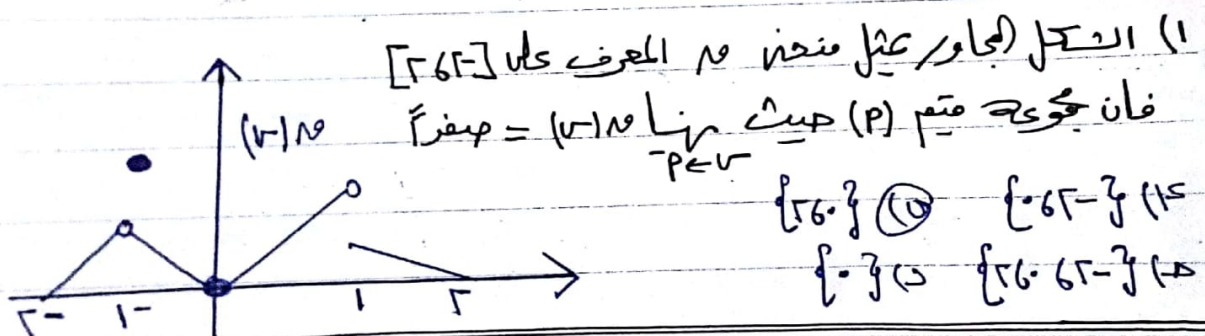 ١) الشكل المجاور يمثل منحنى ق المعرف على [-٢، ٢]
فان مجموعة قيم (P) حيث نهــا ق(س) = صفراً
س←P⁻
ق(س)
P) {-٢، ٠} ب) {٠، ٢}
ج) {-٢، ٠، ٢} د) {٠}
-٢ -١ ١ ٢